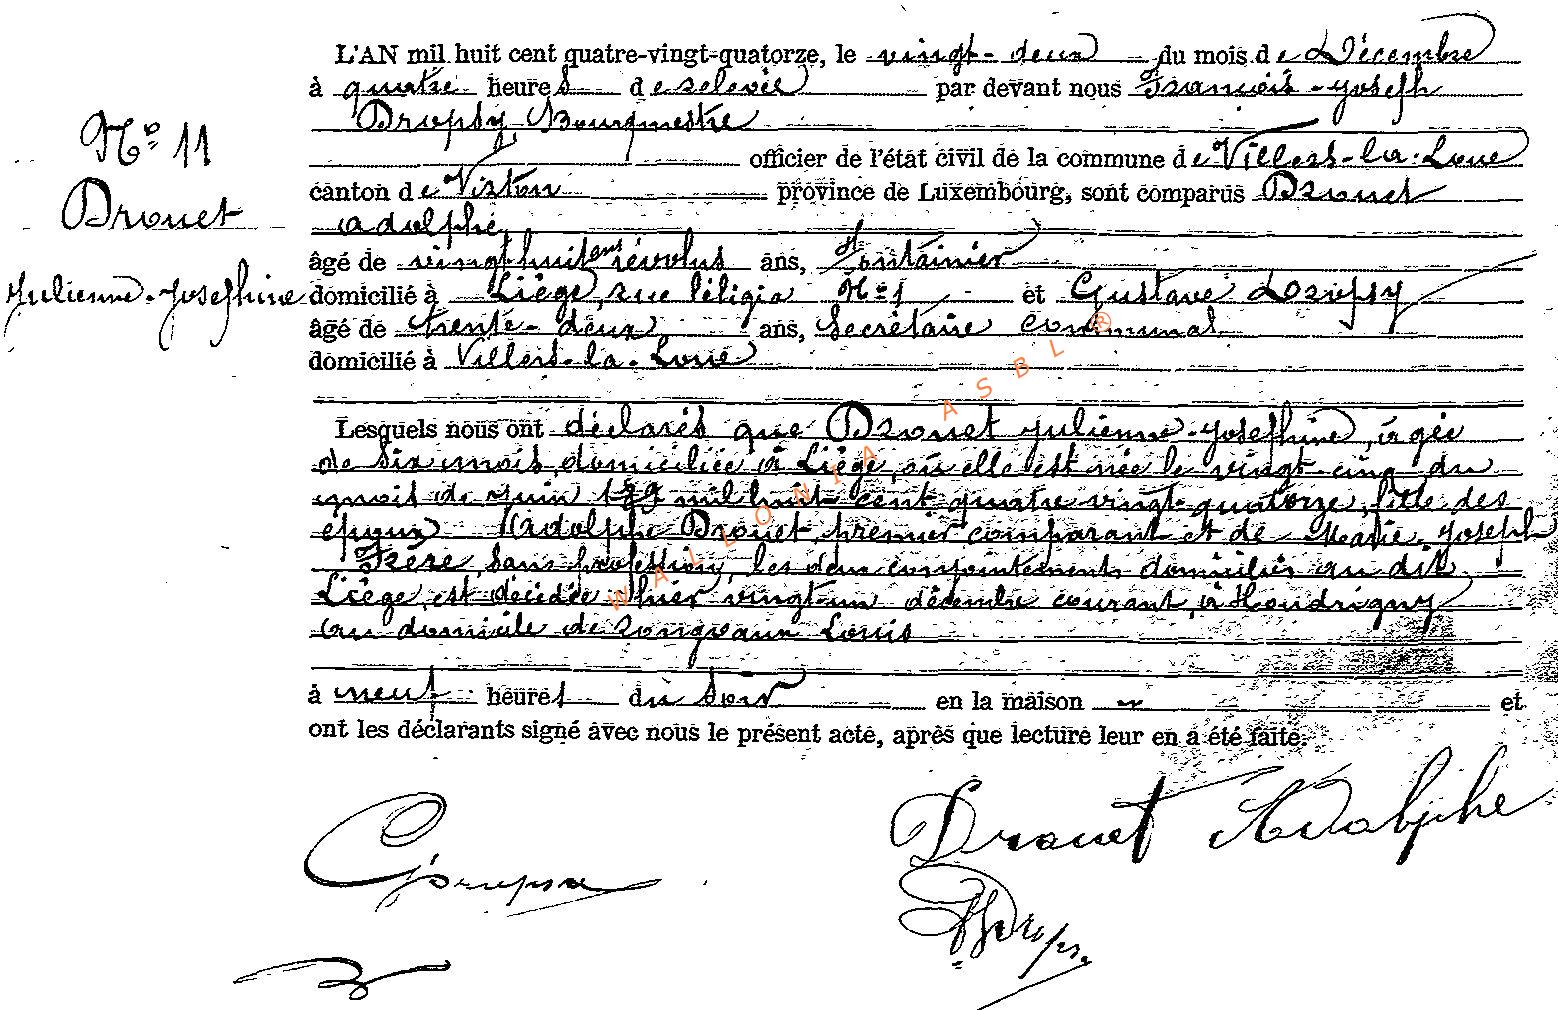 L'AN mil huit cent quatre-vingt-quatorze, le vingt-deux du mois de Décembre
à quatre heures de relevée par devant nous François-Joseph
Dropsy, Bourgmestre
N° 11
officier de l'état civil de la commune de Villers-la-Loue
canton de Virton province de Luxembourg, sont comparus Drouet
Drouet
adolphe,
âgé de vingt huit ans révolus ans, Fontainier
Julienne-Josephine
domicilié à Liége, rue N° 1 et Gustave Dropsy
âgé de trente-deux ans, Secrétaire Communal
domicilié à Villers-la-Loue
Lesquels nous ont déclarés que Drouet Julienne-Josephine, âgée
de six mois, domiciliée à Liége, où elle est née le vingt-cinq du
mois de Juin mil huit cent quatre vingt-quatorze, fille des
époux Adolphe Drouet, premier comparant et de Marie, Joseph
Frére, sans profession, les deux conjointements domiciliés au dit
Liége, est décédée hier vingt-un décembre courant, à Houdrigny
au domicile de Rongvaux Louis
à neuf heures du soir en la maison et
ont les déclarants signé avec nous le présent acte, après que lecture leur en a été faite.
Drouet Adolphe
GDropsy
FJDropsy
WALLONIA ASBL ®